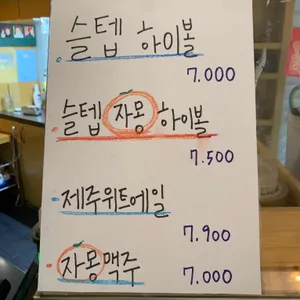 슬텝 하이볼
7.000
슬텝 자몽 하이볼
7.500
제주위트에일
7.900
자몽맥주
7.000